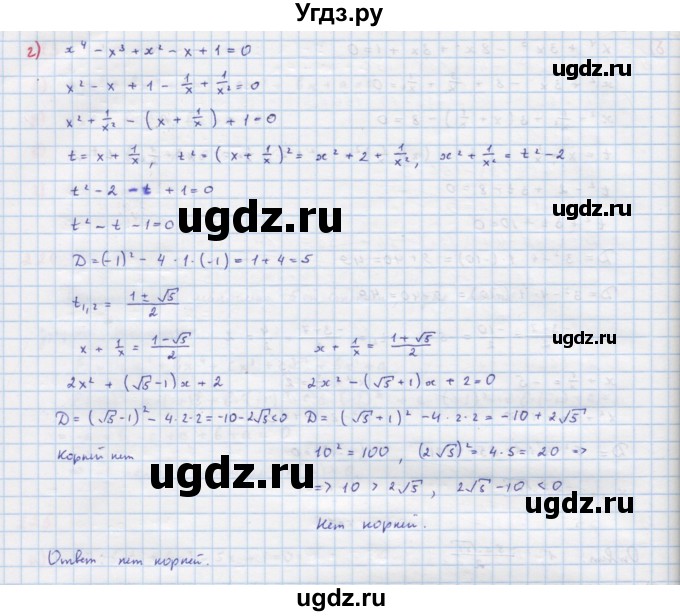 Угдз.ру
г) x⁴ − x³ + x² − x + 1 = 0
x² − x + 1 − 1/x + 1/x² = 0
ugdz.ru ugdz.ru
x² + 1/x² − (x + 1/x) + 1 = 0
t = x + 1/x; t² = (x + 1/x)² = x² + 2 + 1/x², x² + 1/x² = t² − 2
t² − 2 − t + 1 = 0
t² − t − 1 = 0
ugdz.ru ugdz.ru
D = (−1)² − 4 · 1 · (−1) = 1 + 4 = 5
t₁,₂ = (1 ± √5)/2
x + 1/x = (1 − √5)/2 x + 1/x = (1 + √5)/2
ugdz.ru
2x² + (√5 − 1)x + 2 2x² − (√5 + 1)x + 2 = 0
D = (√5 − 1)² − 4·2·2 = −10 − 2√5 < 0 D = (√5 + 1)² − 4·2·2 = −10 + 2√5
Корней нет 10² = 100, (2√5)² = 4·5 = 20 =>
ugdz.ru ugdz.ru
=> 10 > 2√5, 2√5 − 10 < 0
Нет корней.
Ответ нет корней.
ugdz.ru